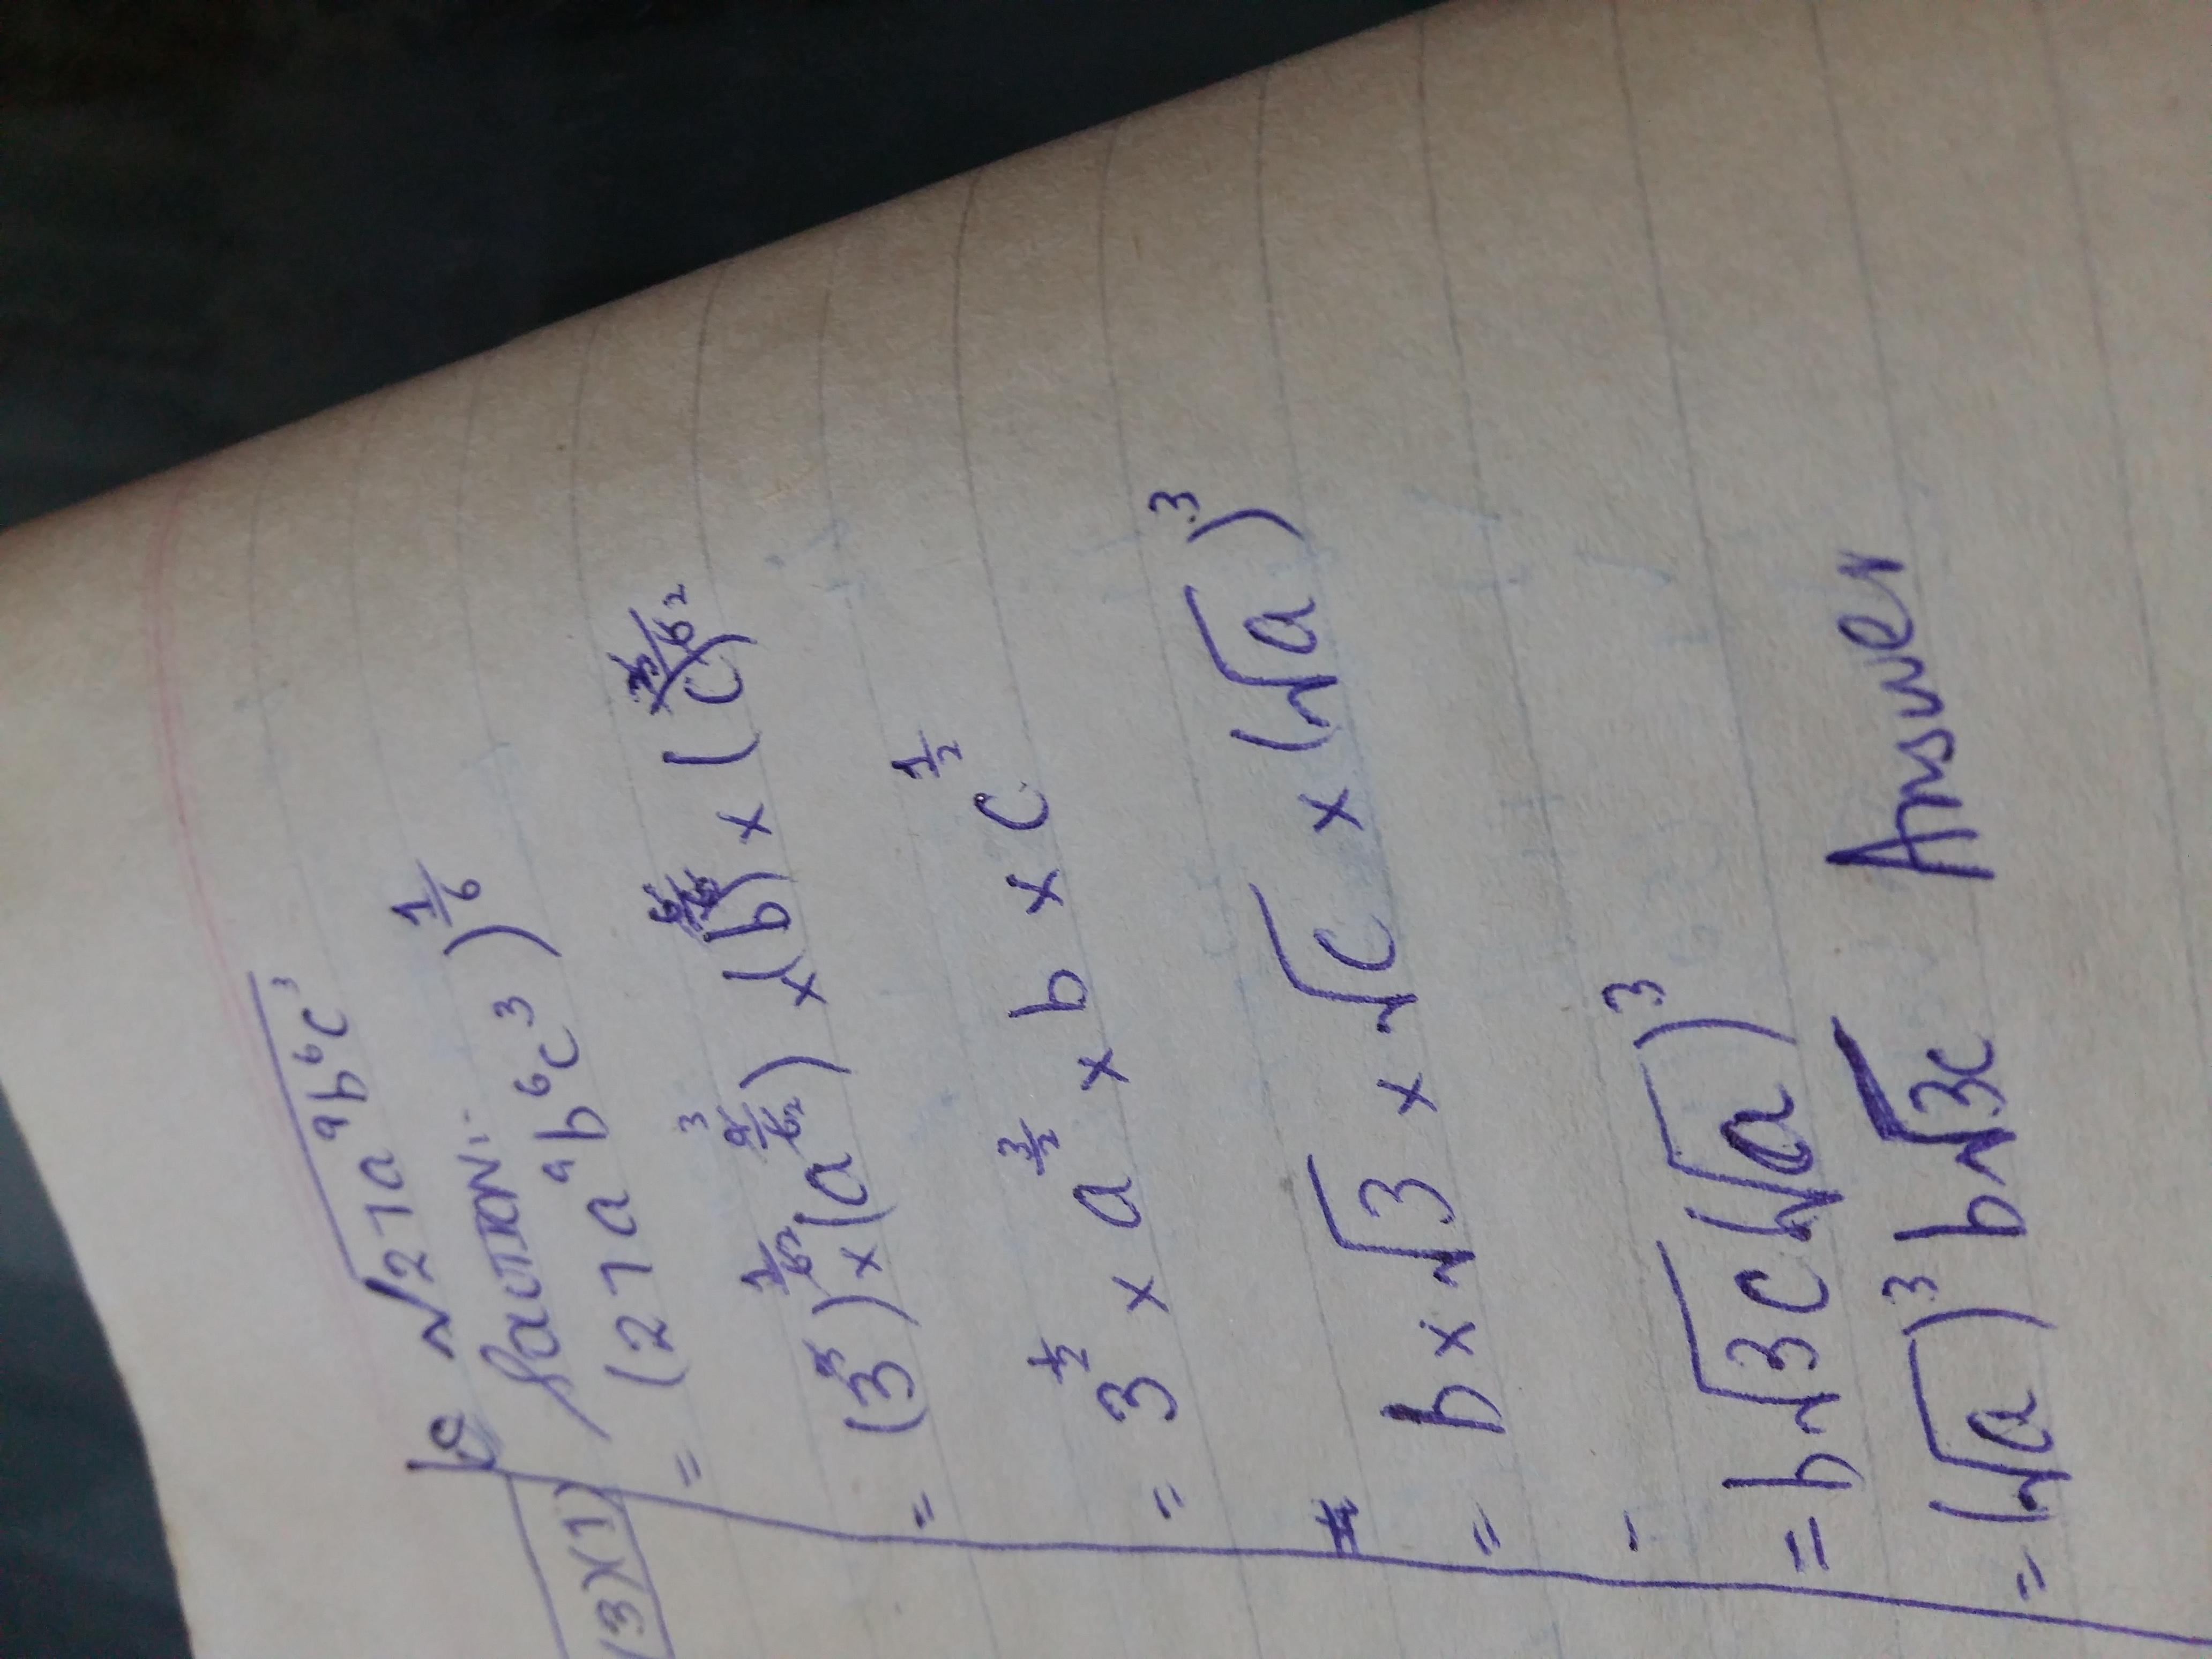 6 √27a⁹b⁶c³
Solution:-
(3)(1)
= (27a⁹b⁶c³)^1/6
= (3³)^1/6₂ × (a^9/6₂ ³) × (b^6/6) × (c^3/6₂)
= 3^1/2 × a^3/2 × b × c^1/2
= b × √3 × √c × (√a)³
= b√3c (√a)³
= (√a)³ b√3c Answer